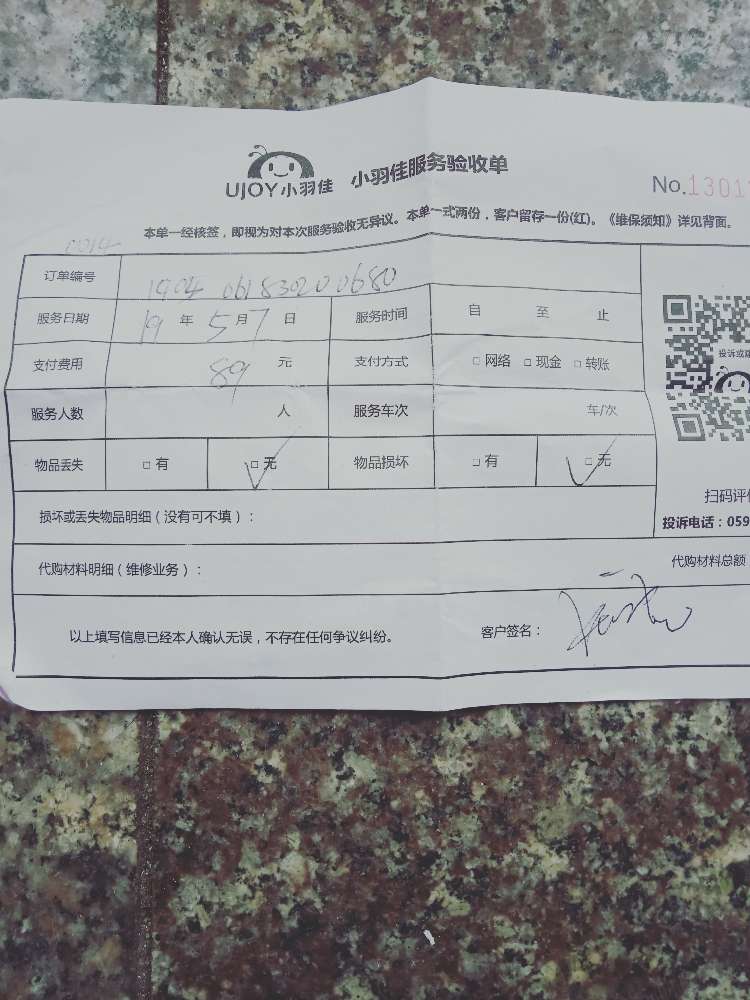 UJOY小羽佳 小羽佳服务验收单
No.1301
本单一经核签，即视为对本次服务验收无异议。本单一式两份，客户留存一份(红)。《维保须知》详见背面。
0014
订单编号 1904 06183020 0680
服务日期 19 年 5 月 7 日 服务时间 自 至 止
支付费用 89 元 支付方式 □ 网络 □ 现金 □ 转账
投诉或
服务人数 人 服务车次 车/次
物品丢失 □ 有 □ 无 物品损坏 □ 有 □ 无
扫码评
损坏或丢失物品明细（没有可不填）：
投诉电话：059
代购材料明细（维修业务）： 代购材料总额
以上填写信息已经本人确认无误，不存在任何争议纠纷。 客户签名：